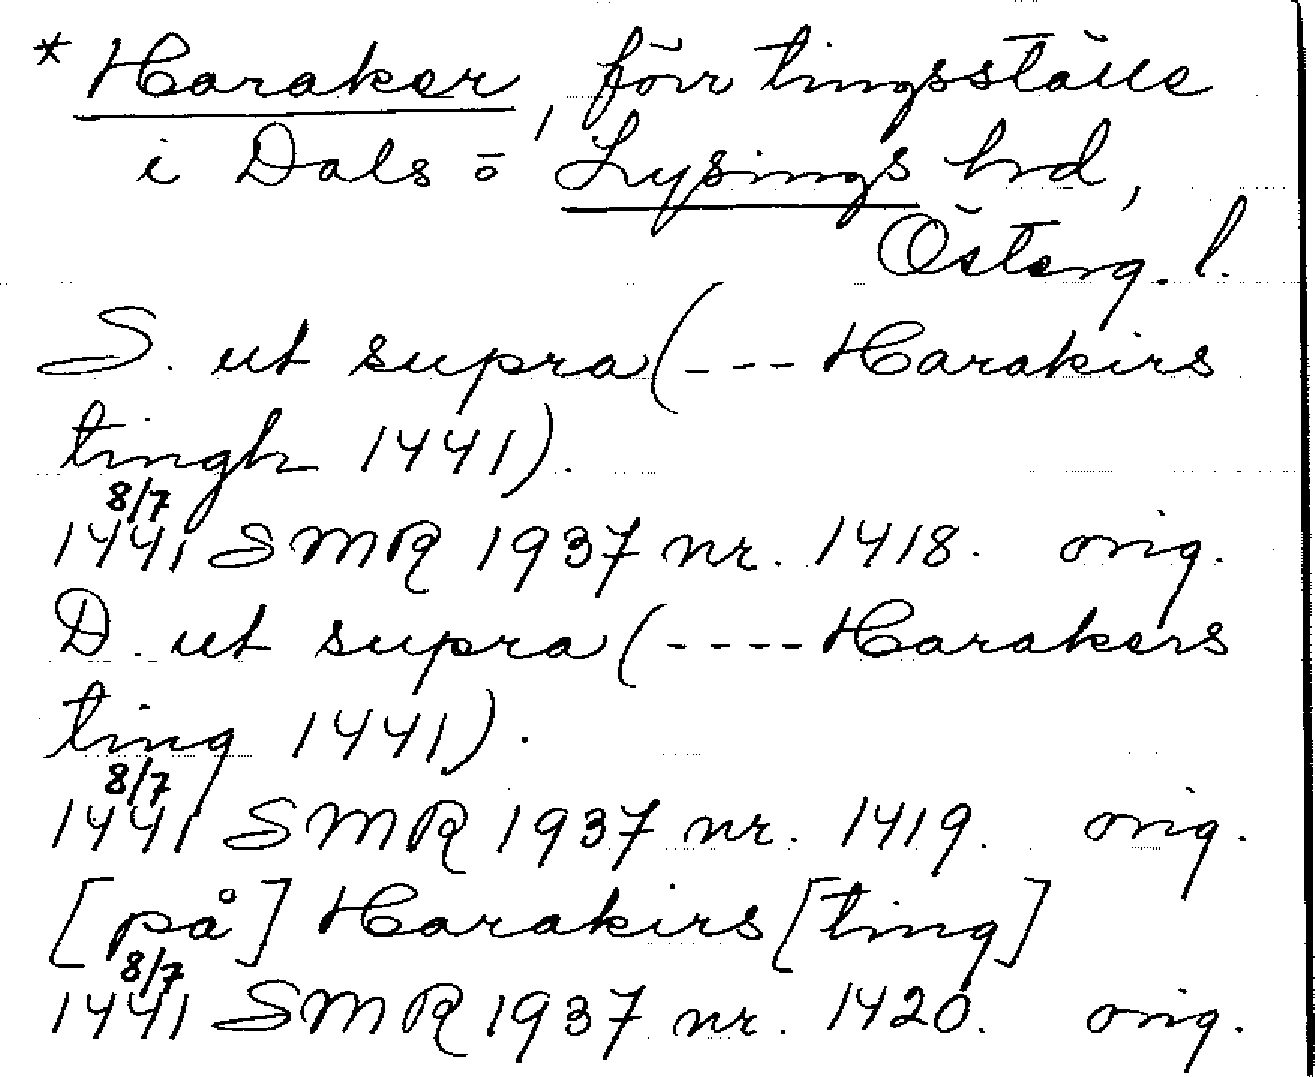 * Haraker, förr tingsställe
i Dals o Lysings hrd,
Österg. l.
S. ut supra (--- Harakirs
tingh 1441).
8/7
1441 SMR 1937 nr. 1418. orig.
D. ut supra (---- Harakers
ting 1441).
8/7
1441 SMR 1937 nr. 1419. orig.
[på] Harakirs [ting]
8/7
1441 SMR 1937 nr. 1420. orig.